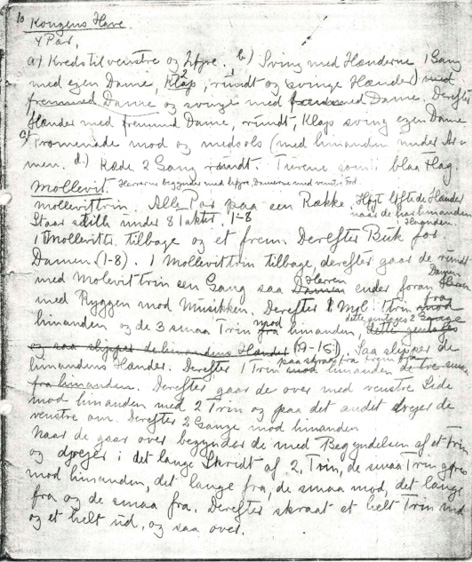 10 Kongens Have
4 Par,
a) Kreds til venstre og højre. b) Sving med Hænderne 1 Gang
med egen Dame, Klap, rundt og svinge Hænder med
fremmed Dame og svinge med fremmed Dame. Derefter
Hænder med fremmed Dame, rundt, Klap sving egen Dame
c) Promenade mod og medsols (med hinanden under Ar-
men. d.) Kæde 2 Gang rundt. Turene som i blaa Flag
Møllevit. Herrerne begynder med højre Damerne med venstre Fod.
møllevittrin. Alle Par paa een Række. Højt løftede Hænder
naar de har hinanden i Hænderne.
Staar stille under 8 Takter. 1-8
1 Møllevittr. tilbage og et frem. Derefter Buk for
Damen (1-8). 1 Møllevittrin tilbage, derefter gaar de rundt
med Molevittrin een Gang saa Herren ender foran Damen
med Ryggen mod Musikken. Derefter 1 Møl. : trin fra
hinanden og de 3 smaa Trin mod hinanden, dette gentages 2 Gange
og saa slipper de hinandens Hænder (9-15). Saa slipper de
hinandens Hænder. Derefter 1 Trin mod hinanden de tre smaa
fra hinanden. Derefter gaar de over med venstre Side
mod hinanden med 2 Trin og paa det andet drejer de
venstre om. Derefter 2 Gange mod hinanden
Naar de gaar over begynder de med Begyndelsen af et trin
og drejer i det lange Skridt af 2. Trin, de smaa Trin gøres
mod hinanden, det lange fra, de smaa mod, det lange
fra og de smaa fra. Derefter skraat et helt Trin ind
og et helt ud, og saa over.